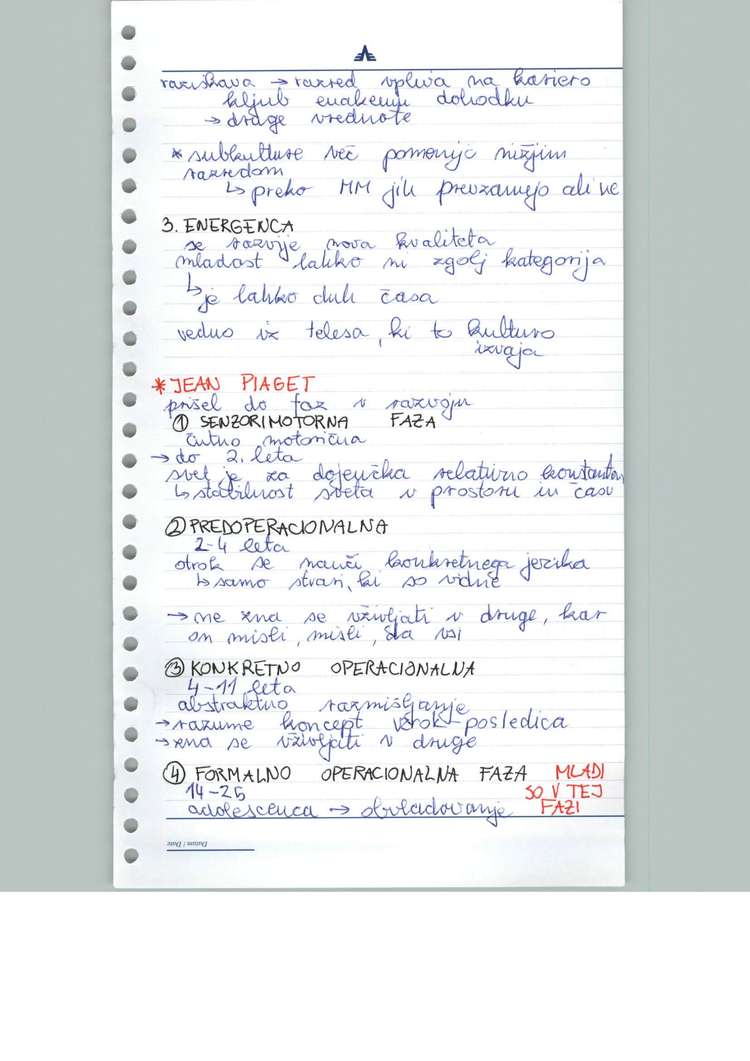 raziskava → razred vpliva na kariero
kljub enakemu dohodku
→ druge vrednote
* subkulture več pomenijo nižjim
razredom
↳ preko MM jih prevzamejo ali ne
3. ENERGENCA
se razvije nova kvaliteta
mladost lahko ni zgolj kategorija
↳ je lahko duh časa
vedno iz telesa, ki to kulturo
izvaja
* JEAN PIAGET
prišel do faz v razvoju
① SENZORIMOTORNA FAZA
čutno motorična
→ do 2. leta
svet je za dojenčka relativno konstanten
↳ stabilnost sveta v prostoru in času
② PREDOPERACIONALNA
2-4 leta
otrok se nauči konkretnega jezika
↳ samo stvari, ki so vidne
→ ne zna se vživljati v druge, kar
on misli, misli, da vsi
③ KONKRETNO OPERACIONALNA
4-11 leta
abstraktno razmišljanje
→ razume koncept vzrok-posledica
→ zna se vživljati v druge
④ FORMALNO OPERACIONALNA FAZA MLADI
14-25 SO V TEJ
adolescenca → obvladovanje FAZI
Datum / Date